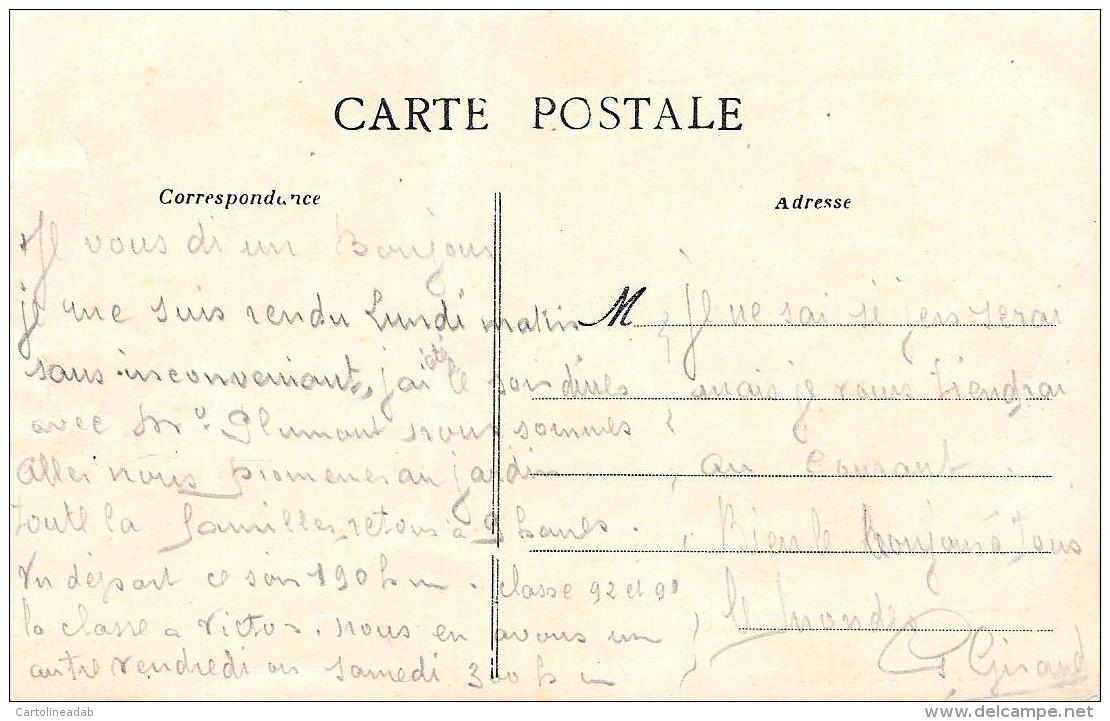 CARTE POSTALE
Correspondance
Adresse
Je vous di un Bonjour
je me suis rendu Lundi matin
sans inconveniant, j'ai été le soir
avec Mr. Plumont nous sommes
aller nous promener au jardin
toute la familles, retour à 9 heures.
Un départ ce soir 190 h m. classe 92 et
la classe a Victor. nous en avons un
autre vendredi ou samedi 300 h m
M
Je ne sai si j'en serai
mais je vous tiendrai
au courant.
Bien le bonjour à tous
le monde
G. Girard
Cartolineadab
delcampe.net